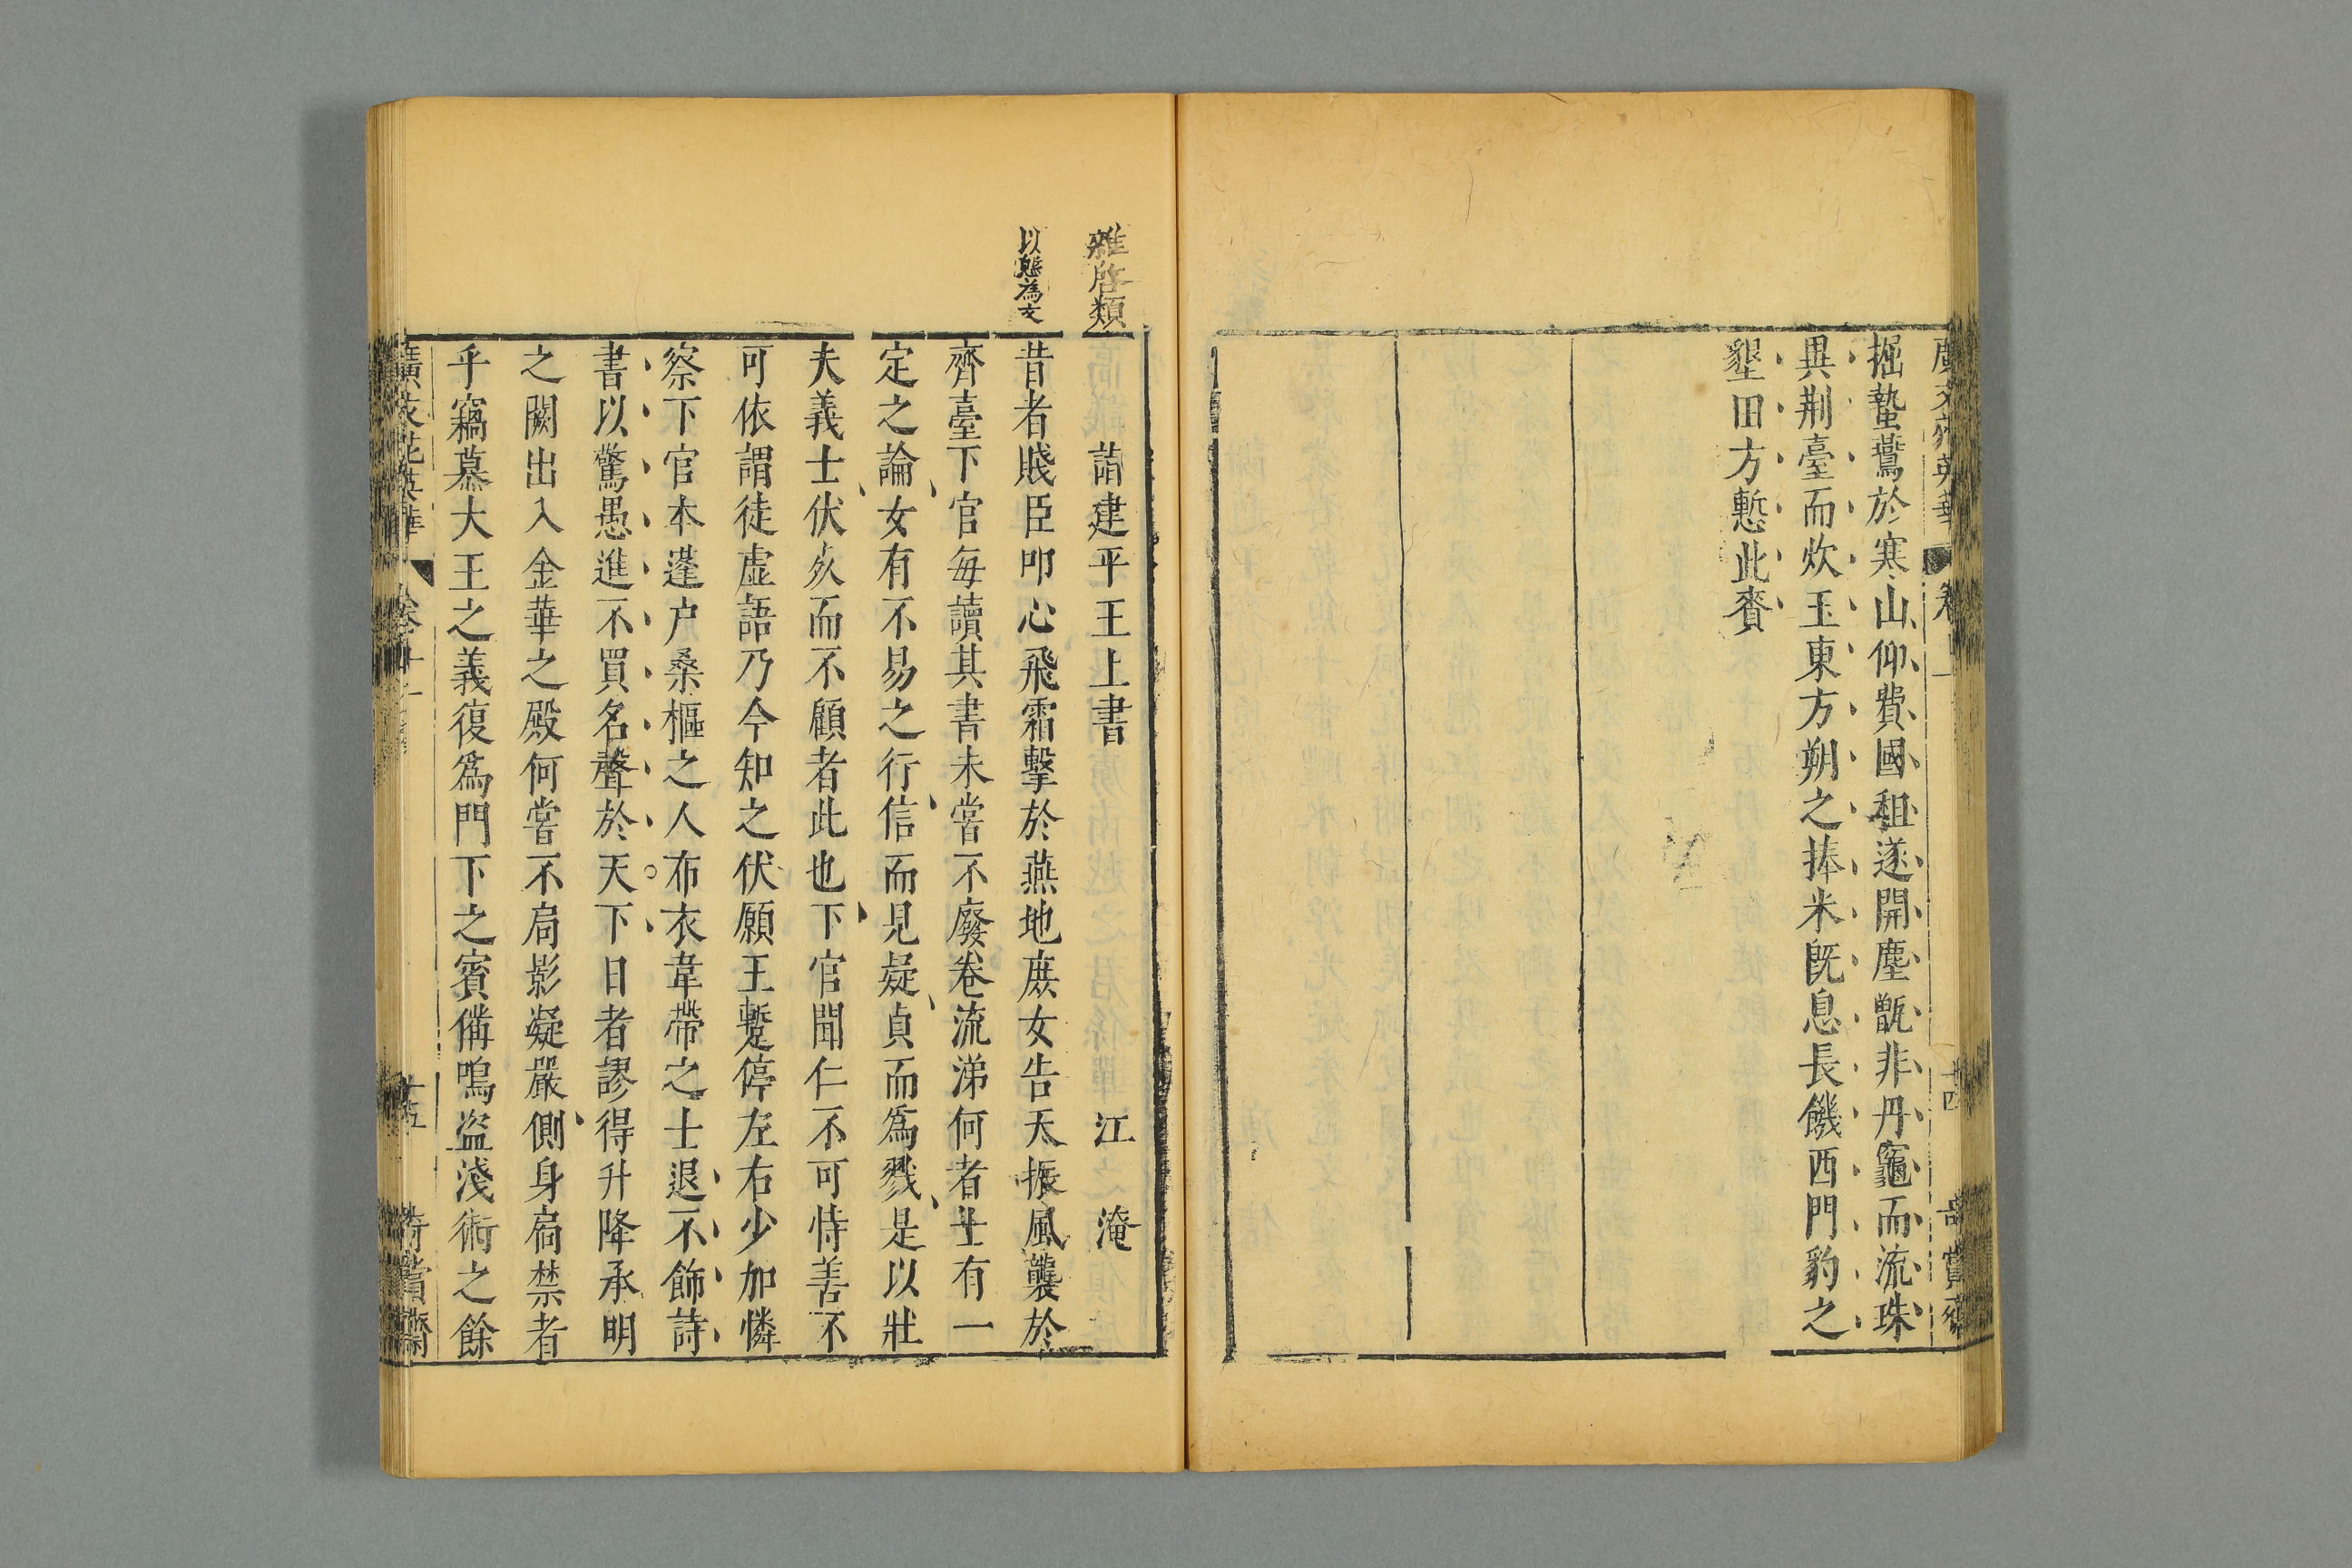 掘蟄鷰於寒山仰費國租遂開塵甑非丹竈而流珠
異荆臺而炊玉東方朔之捧米旣息長饑西門豹之
墾田方慙此賚
雜啓類
詣建平王上書 江淹
以態為文
昔者賤臣叩心飛霜擊於燕地庶女告天振風襲於
齊臺下官每讀其書未嘗不廢卷流涕何者士有一
定之論女有不易之行信而見疑貞而爲戮是以壯
夫義士伏死而不顧者此也下官聞仁不可恃善不
可依謂徒虛語乃今知之伏願王蹔停左右少加憐
察下官本蓬户桑樞之人布衣韋帶之士退不飾詩
書以驚愚進不買名聲於天下日者謬得升降承明
之闕出入金華之殿何嘗不局影凝嚴側身扃禁者
乎竊慕大王之義復爲門下之賓備鳴盜淺術之餘
十五